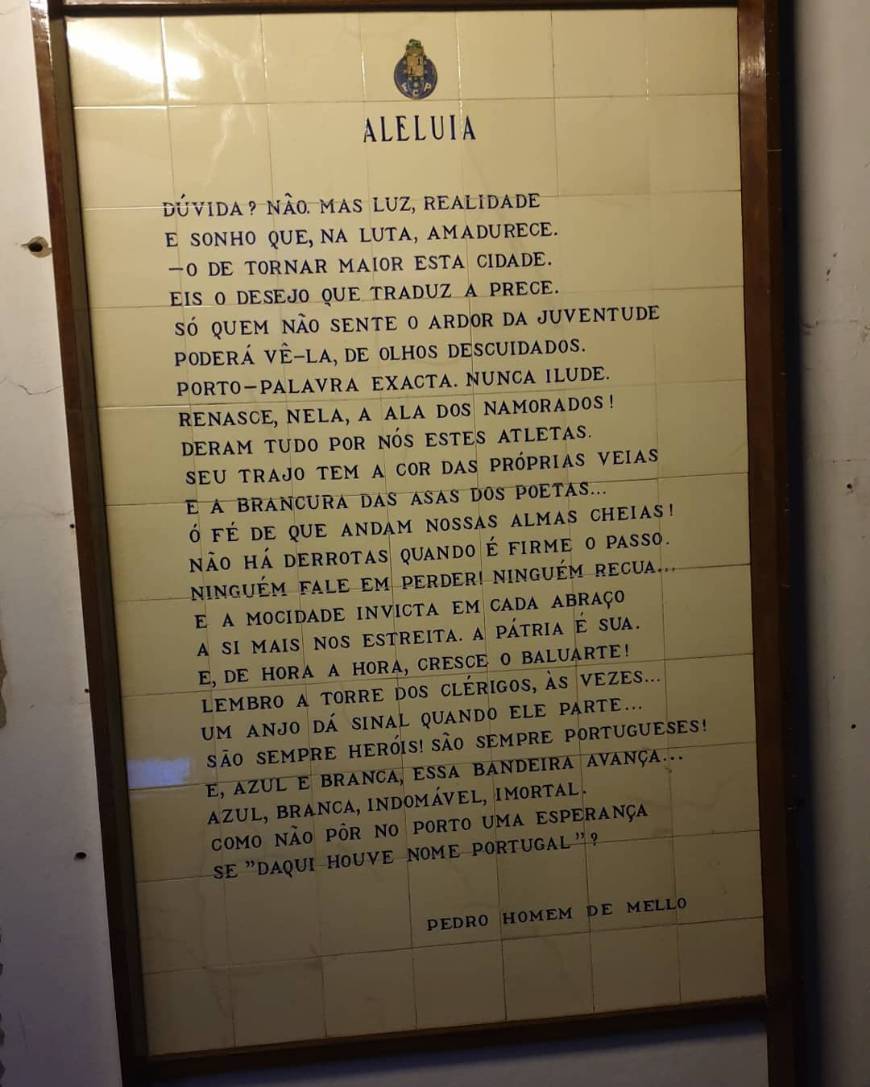 F C P
ALELUIA
DÚVIDA? NÃO. MAS LUZ, REALIDADE
E SONHO QUE, NA LUTA, AMADURECE.
—O DE TORNAR MAIOR ESTA CIDADE.
EIS O DESEJO QUE TRADUZ A PRECE.
SÓ QUEM NÃO SENTE O ARDOR DA JUVENTUDE
PODERÁ VÊ-LA, DE OLHOS DESCUIDADOS.
PORTO-PALAVRA EXACTA. NUNCA ILUDE.
RENASCE, NELA, A ALA DOS NAMORADOS!
DERAM TUDO POR NÓS ESTES ATLETAS.
SEU TRAJO TEM A COR DAS PRÓPRIAS VEIAS
E A BRANCURA DAS ASAS DOS POETAS...
Ó FÉ DE QUE ANDAM NOSSAS ALMAS CHEIAS!
NÃO HÁ DERROTAS QUANDO É FIRME O PASSO.
NINGUÉM FALE EM PERDER! NINGUÉM RECUA...
E A MOCIDADE INVICTA EM CADA ABRAÇO
A SI MAIS NOS ESTREITA. A PÁTRIA É SUA.
E, DE HORA A HORA, CRESCE O BALUARTE!
LEMBRO A TORRE DOS CLÉRIGOS, ÀS VEZES...
UM ANJO DÁ SINAL QUANDO ELE PARTE...
SÃO SEMPRE HERÓIS! SÃO SEMPRE PORTUGUESES!
E, AZUL E BRANCA, ESSA BANDEIRA AVANÇA...
AZUL, BRANCA, INDOMÁVEL, IMORTAL.
COMO NÃO PÔR NO PORTO UMA ESPERANÇA
SE "DAQUI HOUVE NOME PORTUGAL"?
PEDRO HOMEM DE MELLO